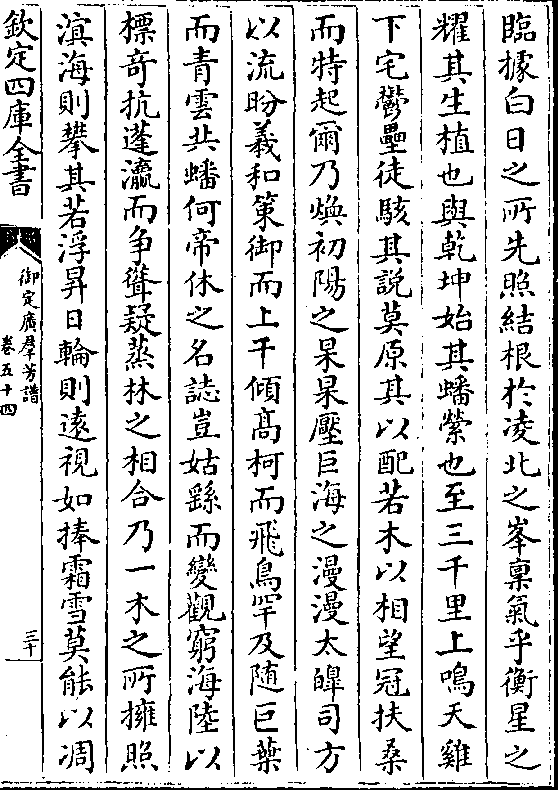 臨據白日之所先照結根於凌北之峯稟氣乎衡星之
耀其生植也與乾坤始其蟠縈也至三千里上鳴天雞
下宅鬱壘徒駭其說莫原其以配若木以相望冠扶桑
而特起爾乃煥初陽之杲杲壓巨海之漫漫太皥司方
以流盼義和策御而上干傾髙柯而飛鳥罕及随巨葉
而青雲共蟠何帝休之名誌豈姑繇而變觀窮海陸以
標竒抗蓬瀛而争聳疑蒸林之相合乃一木之所擁照
滇海則攀其若浮昇日輪則遠視如捧霜雪莫能以凋
欽定四庫全書
御定廣羣芳譜
卷五十四
三十